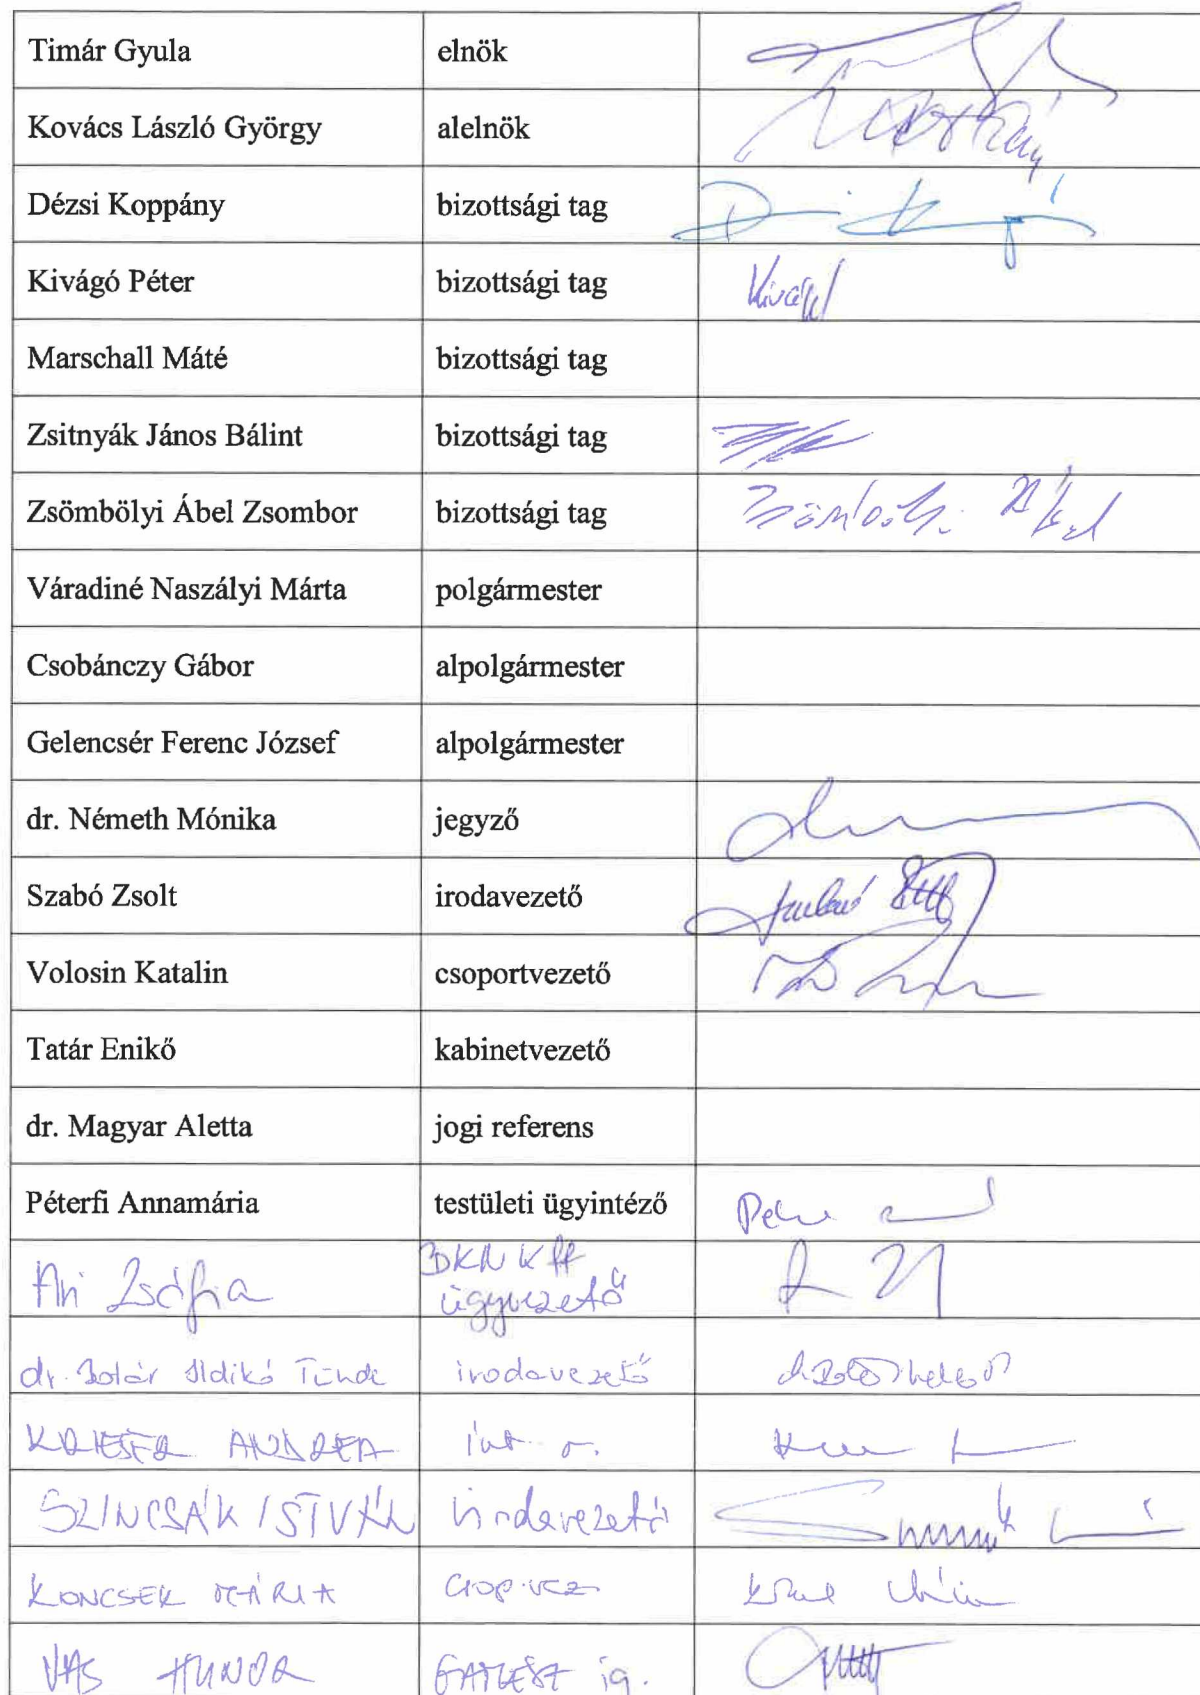 Timár Gyula elnök
Kovács László György alelnök
Dézsi Koppány bizottsági tag
Kivágó Péter bizottsági tag
Marschall Máté bizottsági tag
Zsitnyák János Bálint bizottsági tag
Zsömbölyi Ábel Zsombor bizottsági tag Zsömbölyi Ábel
Váradiné Naszályi Márta polgármester
Csobánczy Gábor alpolgármester
Gelencsér Ferenc József alpolgármester
dr. Németh Mónika jegyző
Szabó Zsolt irodavezető
Volosin Katalin csoportvezető
Tatár Enikő kabinetvezető
dr. Magyar Aletta jogi referens
Péterfi Annamária testületi ügyintéző
Ari Zsófia BKN Kft
ügyvezető
dr. Ildikó Tünde irodavezető
ANDREA int
SZINCSÁK ISTVÁN irodavezető
KONCSEK MÁRIA csop.vez
VAS HUNOR GAMESZ ig.